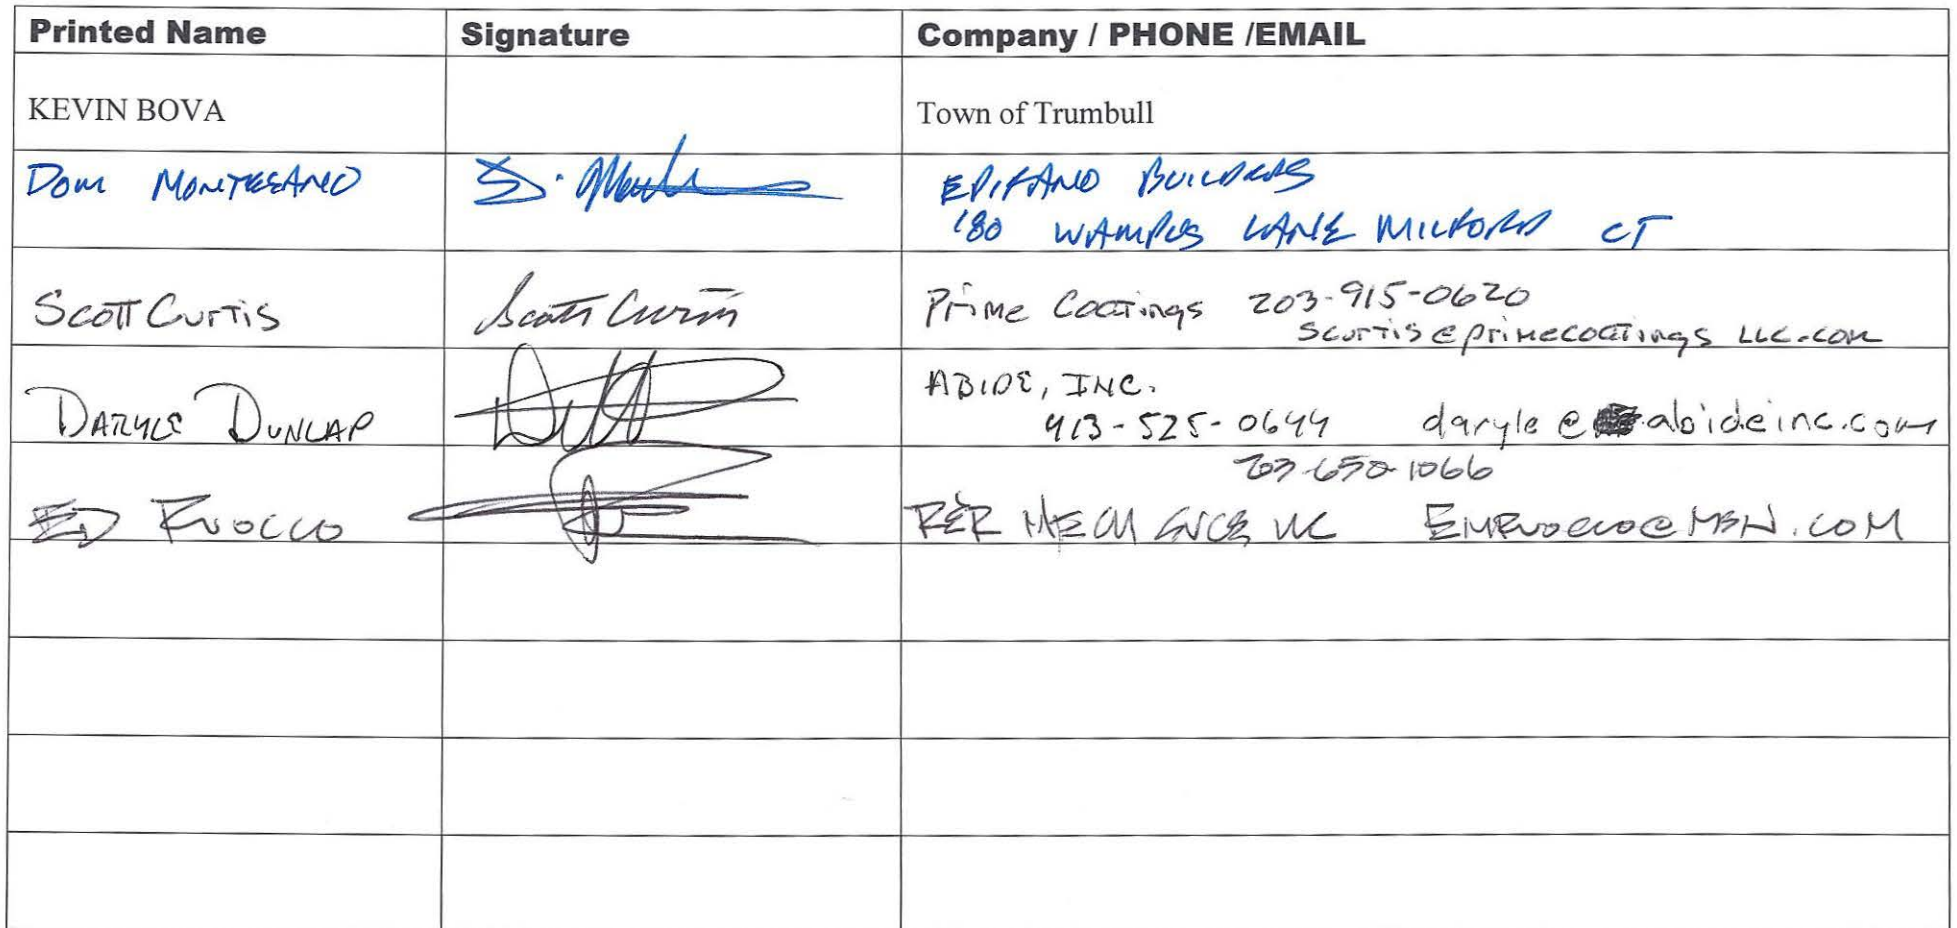 Printed Name Signature Company / PHONE /EMAIL
KEVIN BOVA Town of Trumbull
DOM MONTESANO EPIFANO BUILDERS
180 WAMPUS LANE MILFORD CT
SCOTT CURTIS Scott Curtis Prime Coatings 203-915-0620
scurtis@primecoatingsLLC.com
ABIDE, INC.
DARYLE DUNLAP 413-525-0644 daryle@abideinc.com
203-650-1066
ED RUOCCO R&R MECH LLC EMRUOCCO@MSN.COM